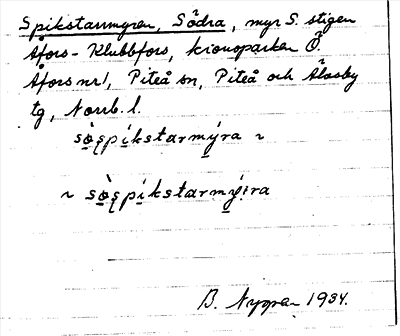 Spikstarrmyren, Södra, myr S. stigen
Åfors-Klubbfors, kronoparken Ö.
Åfors nr 1, Piteå sn, Piteå och Älvsby
tg, Norrb. l.
sò̩ʂpi̩kstarmý̩ra ~
~ sò̩ʂpi̩kstarmý̩ra
B. Nygren 1934.